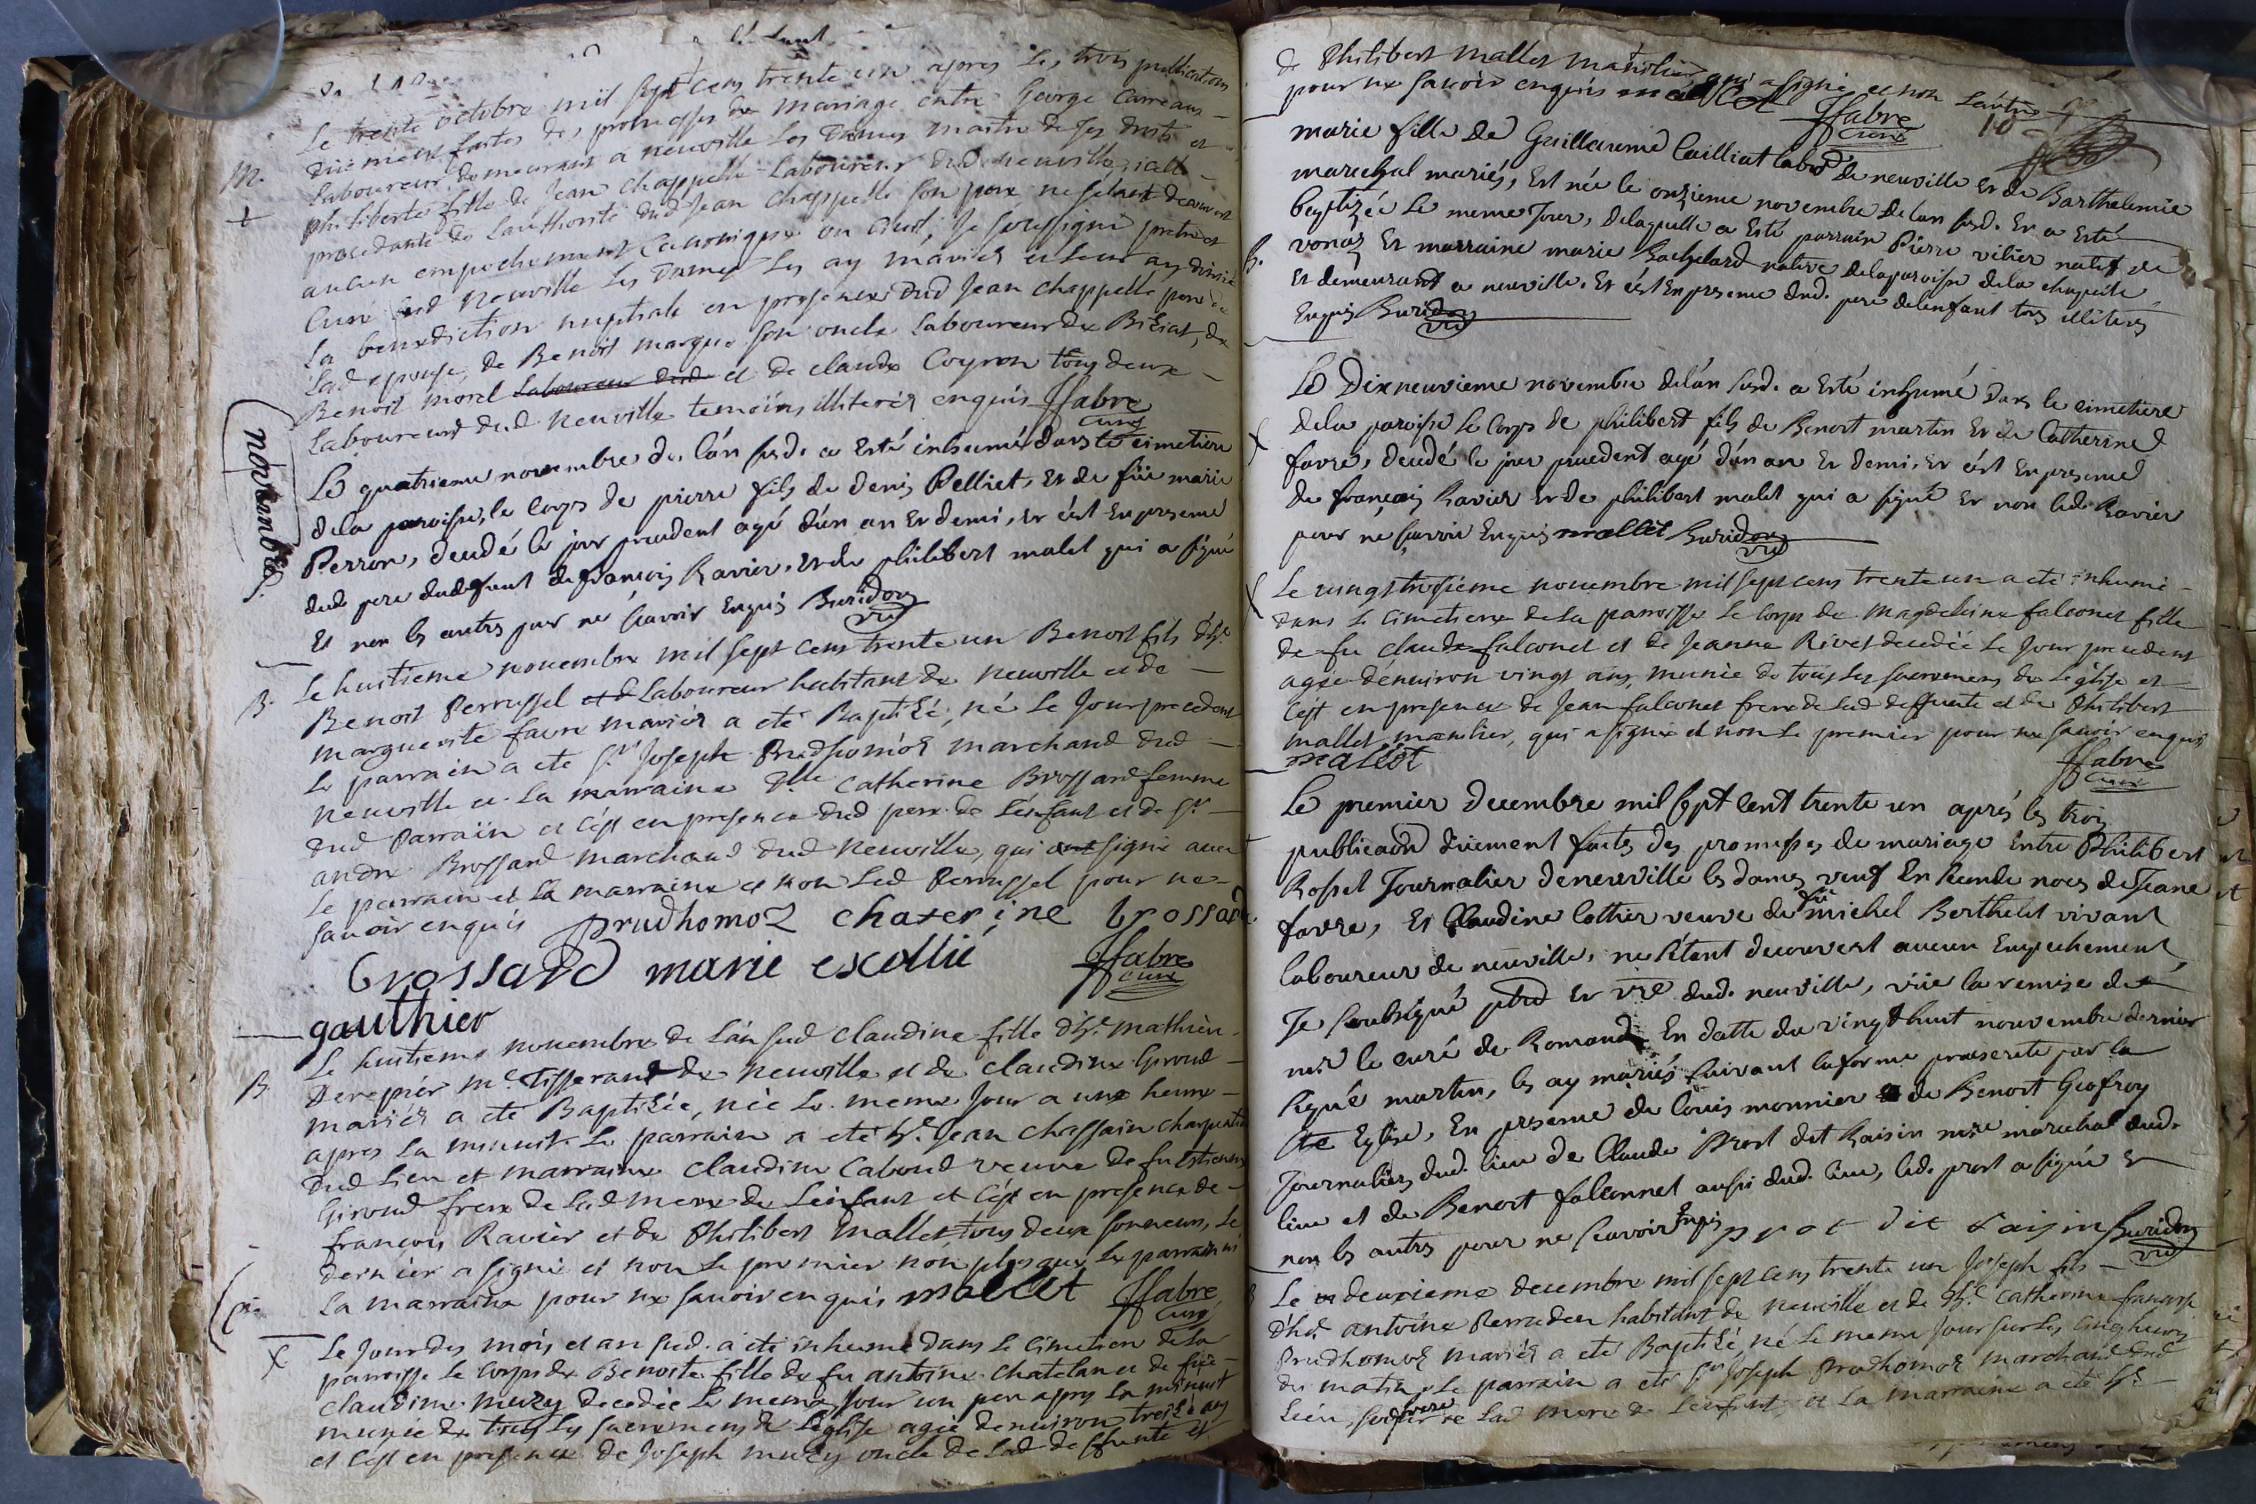 Le trente octobre mil sept cens trente un apres les trois publications
duëment faites des promesses de mariage entre George Carreaux
M. laboureur demeurant a neuville les Dames maitre de ses droits et
philiberte fille de Jean Chappelle Laboureur dud. neuville, icelle
procedante de l'authorité dud Jean Chappelle son pere ne s'etant decouvert
aucun empechement Canonique ou Civil, Je soussigné pretre et
Curé dud Neuville les Dames les ay mariés et leur ay donné
la benediction nuptiale en presence dud Jean Chappelle pere de
lad epouse, de Benoit marque son oncle laboureur de Biziat, de
Benoit morel laboureur dud et de claude Coyron tous deux
laboureurs dud. Neuville temoins illiterés enquis ffabre
curé
novembre.
Le quatrieme novembre de l'án susd. a Esté inhumé dans le cimetiere
dela paroisse, le corps de pierre fils de denis Pelliet, Et de füe marie
Perron, decedé le jour precedent agé d'un an Et demi, Et c'est En presence
dud. pere dud defunt de françois Ravier, Et de philibert malet qui a signé
Et non les autres pour ne sçavoir Enquis Buridon
vic
Le huitieme novembre mil sept cens trente un Benoit fils d'h.e
B. Benoit Perrussel et d Laboureur habitant de neuville et de
marguerite favre mariés a eté Baptisé, né le Jour precedent
Le parrain a eté s.r Joseph Prudhomoz marchand dud
neuville et la marraine d.lle Catherine Brossard femme
dud Parrain et c'est en presence dud pere de l'enfant et de s.r
andre Brossard marchand dud Neuville, qui ont signé avec
le parrain et la marraine et non led Perrussel pour ne
savoir enquis prudhomoz chaterine brossard
brossard marie excoffié ffabre
curé
gauthier
Le huitieme novembre de l'án susd claudine fille d'h.e mathieu
B. Derepier m.e Tisserand de Neuville et de claudine Giroud
mariés a eté Baptisée, née le meme Jour a une heure
apres la minuit. Le parrain a eté h.e Jean Chassain charpentier
dud Lieu et marraine claudine Caboud veuve de fu Etienne
Giroud frere de lad mere de l'enfant et c'est en presence de
françois Ravier et de Philibert mallet tous deux sonneurs, le
dernier a signé et non le premier non plus que le parrain ni
la marraine pour ne savoir enquis mallet ffabre
curé
Le Jour des mois et an sud. a eté inhumé dans le cimetiere de la
parroisse le corps de Benoite fille de fu antoine chatelan et de füe
claudine muzy decedée le meme Jour un peu apres la minuit
munie de tous les sacremens de l'eglise agée denviron treize ans
et c'est en presence de Joseph muzy oncle de lad deffunte et
de Philibert mallet manilier qui a signé et non l'autre
pour ne savoir enquis mallet ffabre
curé
10
marie fille de Guillaume Cailliat labo.r de neuville Et de Barthelemie
marechal mariés, Est née le onzieme novembre de l'an susd. Et a Esté
baptizée le meme Jour, de laquelle a Esté parrain Pierre vilier natif de
B. vonas Et marraine marie Bachelard native de la paroisse de la chapelle
Et demeurant a neuville. Et c'est En presence dud. pere de l'enfant tous illiterés
Enquis Buridon
vic
Le Dixneuvieme novembre de l'án susd. a Esté inhumé dans le cimetiere
dela paroisse le Corps de philibert fils de Benoit martin Et de Catherine
favre, decedé le jour precedent agé d'un an Et demi, Et c'est En presence
de françois Ravier Et de philibert malet qui a signé Et non led. Ravier
pour ne sçavoir Enquis mallet Buridon
vic
Le vingt troisieme novembre mil sept cens trente un a eté inhumé
dans le cimetiere de la parroisse le corps de Magdeleine falconet fille
de fu claude falconet et de Jeanne Rivet decedée le Jour precedent
agée d'environ vingt ans, munie de tous les sacremens de l'eglise et
c'est en presence de Jean falconet frere de lad deffunte et de Philibert
mallet manilier, qui a signé et non le premier pour ne savoir enquis
mallet ffabre
curé
Le premier decembre mil sept cent trente un aprés les trois
publicaôns düement faites des promesses de mariage Entre Philibert
Rossel Journalier de neuville les dames veuf En seconde noces de Jeane
favre, Et Claudine Cottier veuve de fû michel Berthelet vivant
laboureur de neuville, ne s'étant decouvert aucun Empechement,
Je soubsigné ptre Et vic.e dud. neuville, vüe la remise de
m.r le curé de Romans En datte du vingt huit nouvembre dernier
signé martin, les ay mariés suivant la forme prescrite par la
Ste Eglise, En presence de louis monnier de Benoit Geofroy
Journaliers dud. lieu de Claude Prost dit Raisin m.re marechal dud.
lieu et de Benoit falconnet aussi dud. lieu, led. prost a signé Et
non les autres pour ne sçavoir Enquis prot dit raisin Buridon
vic
Le deuxieme decembre mil sept cens trente un Joseph fils
d'h.e antoine Perraden habitant de Neuville et de d.lle Catherine françoise
Prudhomoz mariés a eté Baptisé, né le meme Jour sur les cinq heures
du matin. Le parrain a eté s.r Joseph Prudhomoz marchand dud
Lieu, frere de lad mere de l'enfant et la marraine a eté h.e